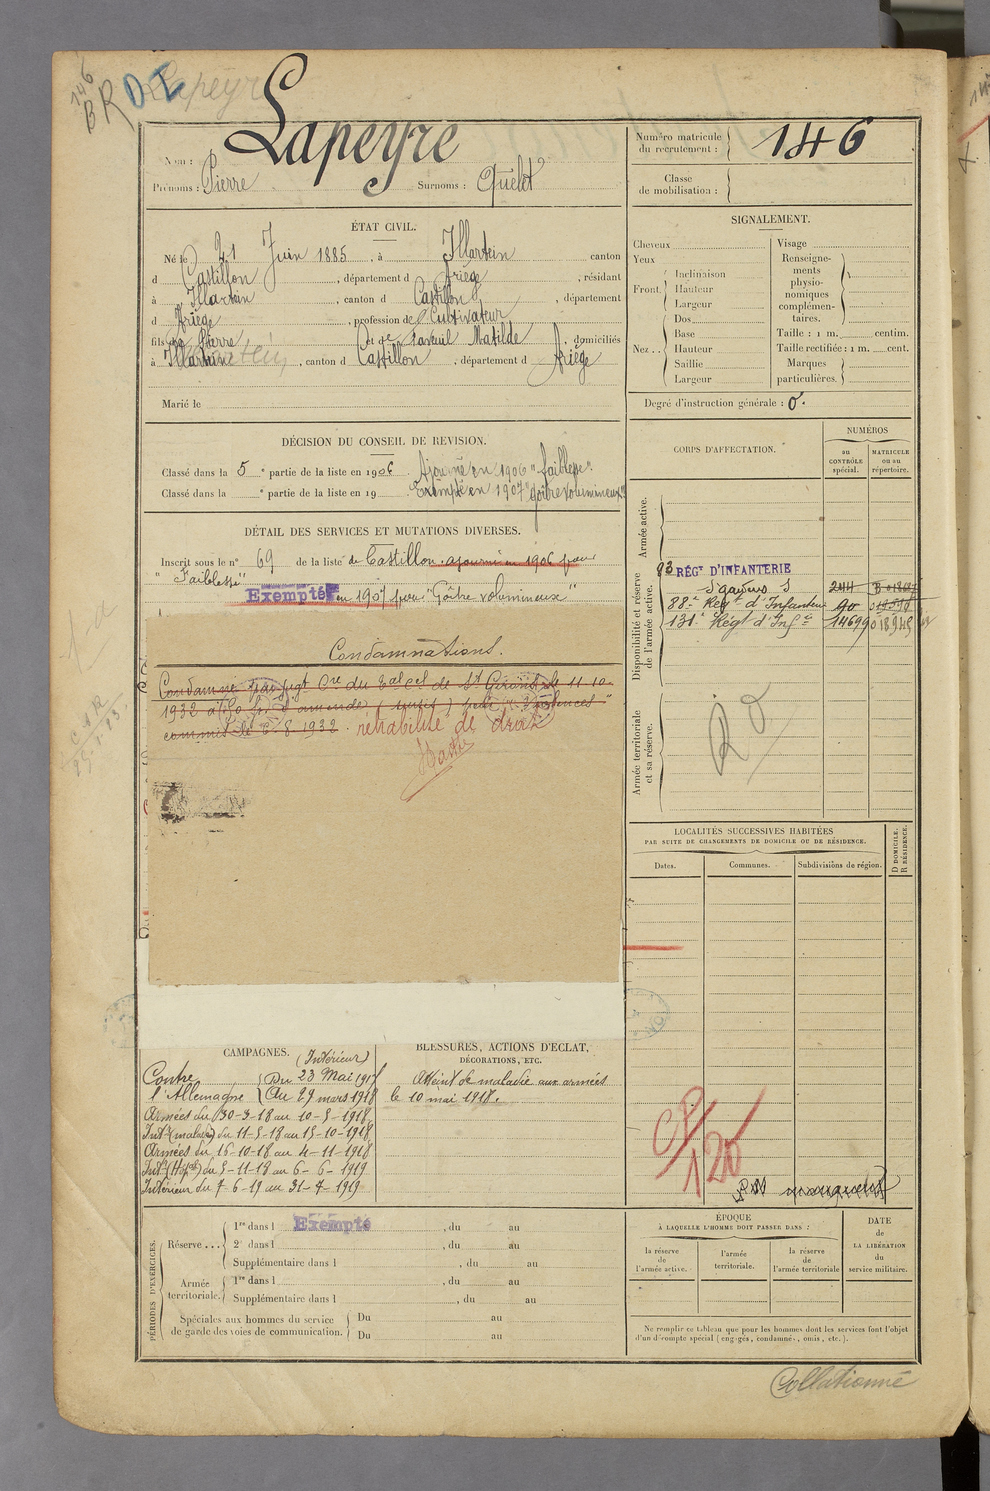 146
BR
Lapeyre
Lapeyre
Nom :
Prénoms : Pierre Surnoms : Quelet
Numéro matricule
du recrutement : 146
Classe
de mobilisation :
ÉTAT CIVIL.
Né le 21 Juin 1885, à Illartein canton
d Castillon, département d Ariège, résidant
à Illartein, canton d Castillon, département
d Ariège, profession de Cultivateur
fils de Pierre et de Matilde, domiciliés
à Illartein, canton d Castillon, département d Ariège
Marié le
SIGNALEMENT.
Cheveux
Yeux
Front.
Inclinaison
Hauteur
Largeur
Nez..
Dos
Base
Hauteur
Saillie
Largeur
Visage
Renseigne-
ments
physio-
nomiques
complémen-
taires.
Taille : 1 m. centim.
Taille rectifiée : 1 m. cent.
Marques
particulières.
Degré d'instruction générale : 0.
DÉCISION DU CONSEIL DE REVISION.
Classé dans la 5e partie de la liste en 1906 Ajourné en 1906 "faiblesse".
Classé dans la e partie de la liste en 19 Exempté en 1907 "goître volumineux"
DÉTAIL DES SERVICES ET MUTATIONS DIVERSES.
Inscrit sous le n° 69 de la liste de Castillon. ajourné en 1906 pour
"Faiblesse"
Exempté en 1907 pour "Goître volumineux"
Condamnations.
Condamné par jugt Cre du Bal cel de St Girons le 11-10-
1932 à 50 fr. d'amende (sursis) pour "violences"
commis le 8-1932. réhabilité de droit
CORPS D'AFFECTATION.
NUMÉROS
au
CONTRÔLE
spécial.
MATRICULE
ou au
répertoire.
Armée active.
Disponibilité et réserve
de l'armée active.
93 RÉGT D'INFANTERIE
St Gaudens 244
88e Régt d'Infanterie 90
131e Régt d'Infie 14699 018945
Armée territoriale
et sa réserve.
RO
LOCALITÉS SUCCESSIVES HABITÉES
PAR SUITE DE CHANGEMENTS DE DOMICILE OU DE RÉSIDENCE.
Dates.
Communes.
Subdivisions de région.
D DOMICILE.
R RÉSIDENCE.
CAMPAGNES.
(Intérieur)
Contre Du 23 Mai 1917
l'Allemagne Au 29 mars 1918
Armées du 30-3-18 au 10-5-1918.
Intr (malade) du 11-5-18 au 15-10-1918
Armées du 16-10-18 au 4-11-1918
Intr (Hôpal) du 5-11-18 au 6-6-1919
Intérieur du 7-6-19 au 31-7-1919
BLESSURES, ACTIONS D'ÉCLAT,
DÉCORATIONS, ETC.
Atteint de maladie aux armées
le 10 mai 1918.
CP
120
PÉRIODES D'EXERCICES.
Réserve...
1re dans l Exempté, du au
2e dans l, du au
Supplémentaire dans l, du au
Armée
territoriale.
1re dans l, du au
Supplémentaire dans l, du au
Spéciales aux hommes du service
de garde des voies de communication.
Du au
Du au
ÉPOQUE
À LAQUELLE L'HOMME DOIT PASSER DANS :
la réserve
de
l'armée active.
l'armée
territoriale.
la réserve
de
l'armée territoriale
DATE
de
LA LIBÉRATION
du
service militaire.
Ne remplir ce tableau que pour les hommes dont les services font l'objet
d'un décompte spécial (engagés, condamnés, omis, etc.).
Collationné